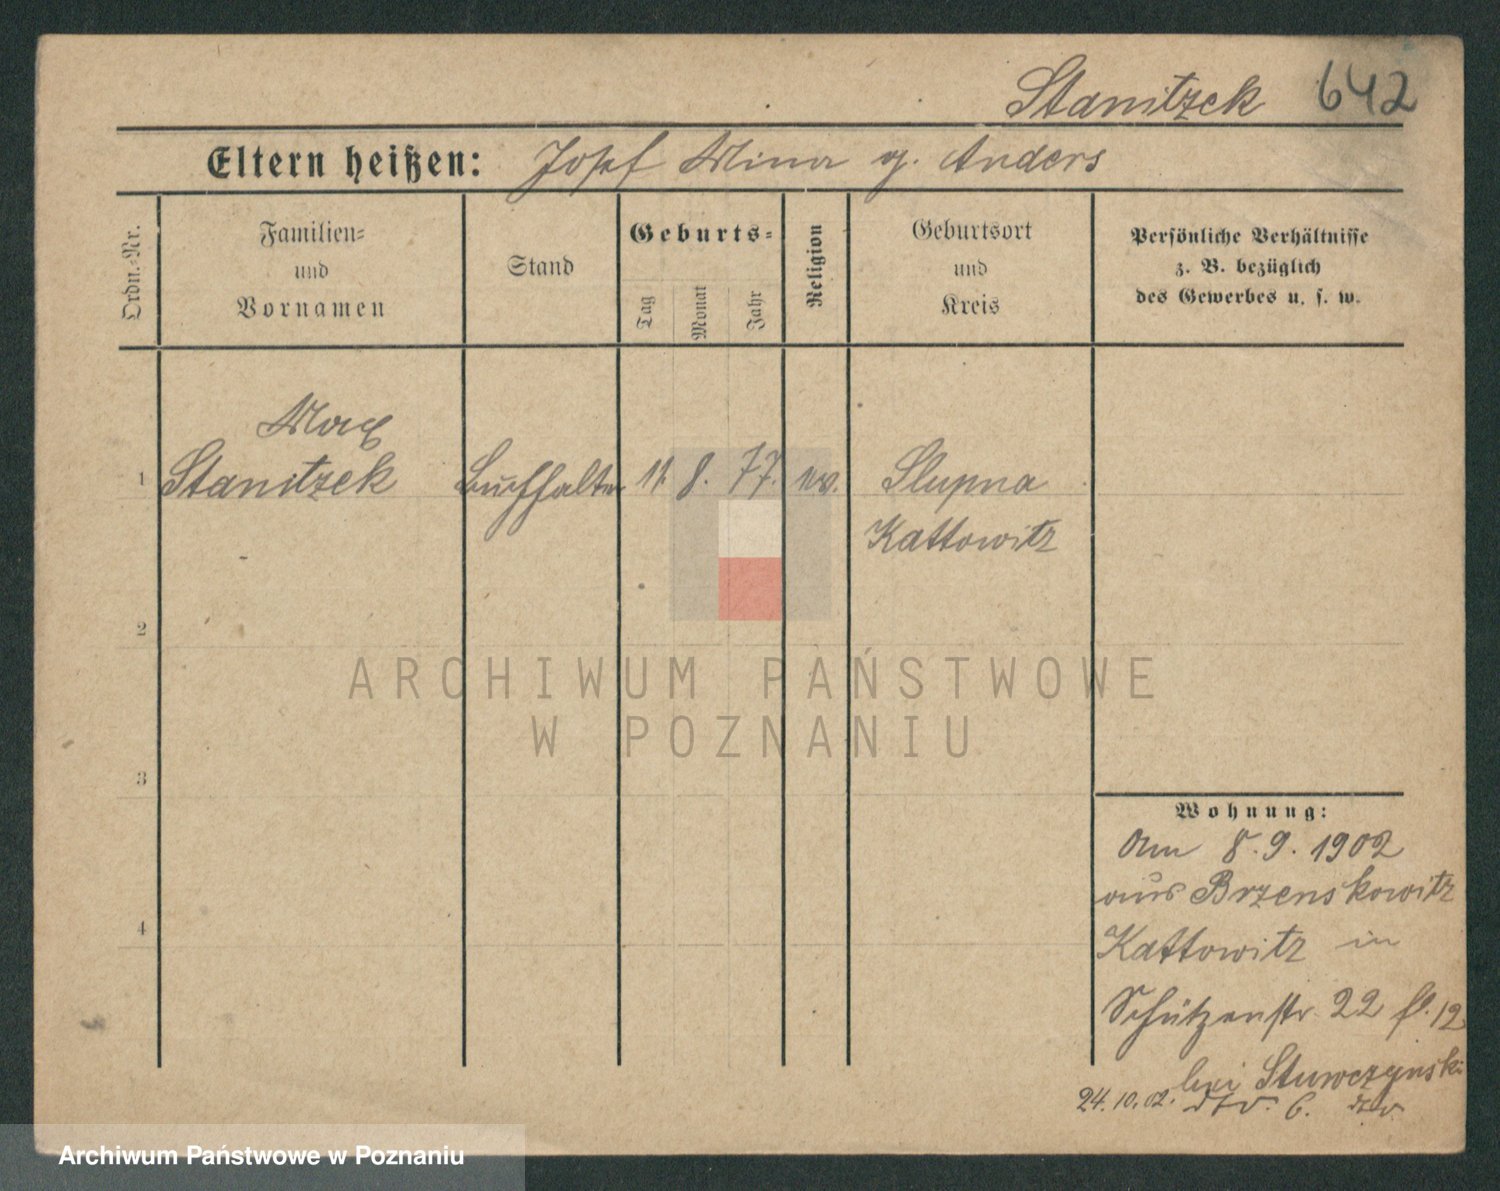 Stanitzek 642
Eltern heißen: Josef Mina g. Anders
Ordn.-Nr.
Familien-
und
Vornamen
Stand
Geburts-
Tag
Monat
Jahr
Religion
Geburtsort
und
Kreis
Persönliche Verhältnisse
z. B. bezüglich
des Gewerbes u. s. w.
Max
1 Stanitzek Buchhalter 11. 8. 77. Slupna
Kattowitz
2
3
4
ARCHIWUM PAŃSTWOWE
W POZNANIU
Wohnung:
Am 8.9.1902
aus Brzenskowitz
Kattowitz in
Schützenstr. 22 12
bei Stuwczynski
24.10.02. dto. 6. dto.
Archiwum Państwowe w Poznaniu